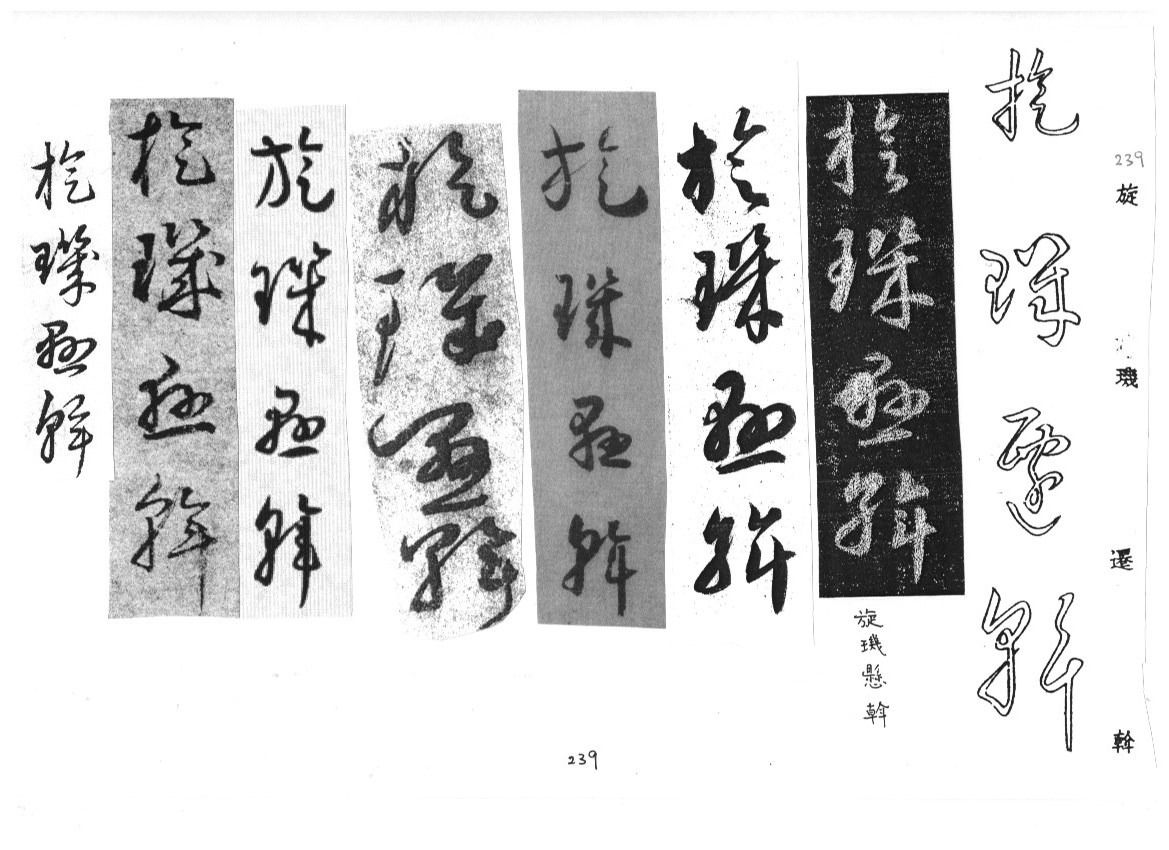 239
旋璣遷斡
旋璣遷斡
旋璣懸斡
旋璣懸斡
旋璣懸斡
旋璣懸斡
旋璣懸斡
旋璣懸斡
旋璣懸斡
旋璣懸斡
239